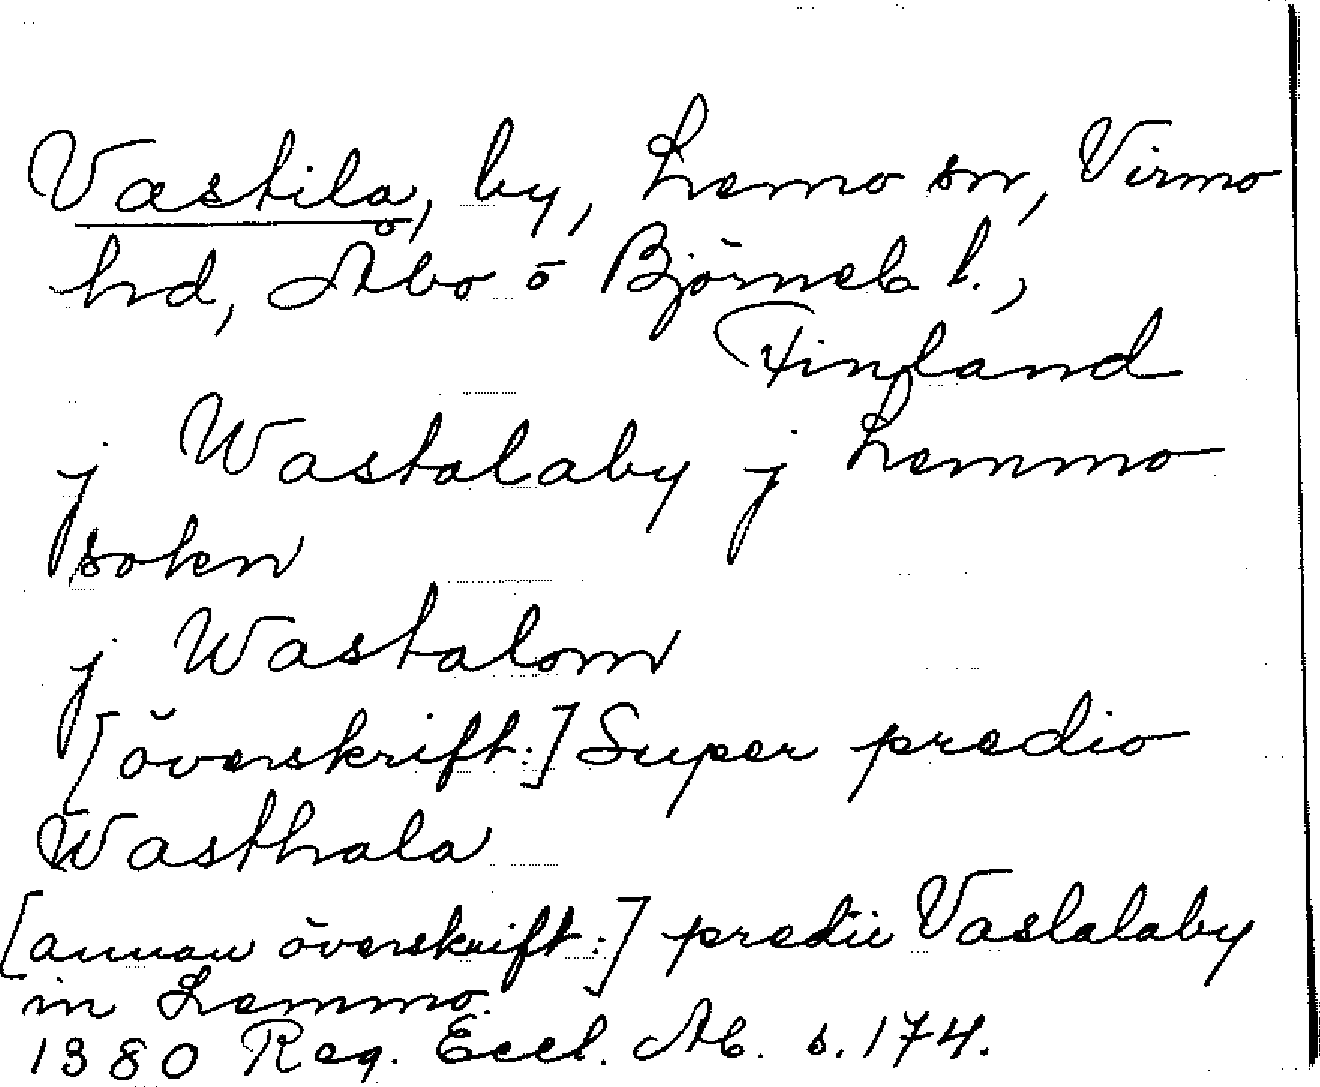 Vastila, by, Lemo sn, Virmo
hd, Åbo o Björneb. l.,
Finland
j Wastalaby j Lemmo
sokn
j Wastalom
[överskrift:] Super predio
Wasthala
[annan överskrift:] predii Vastalaby
in Lemmo.
1380 Reg. Eccl. Ab. s. 174.